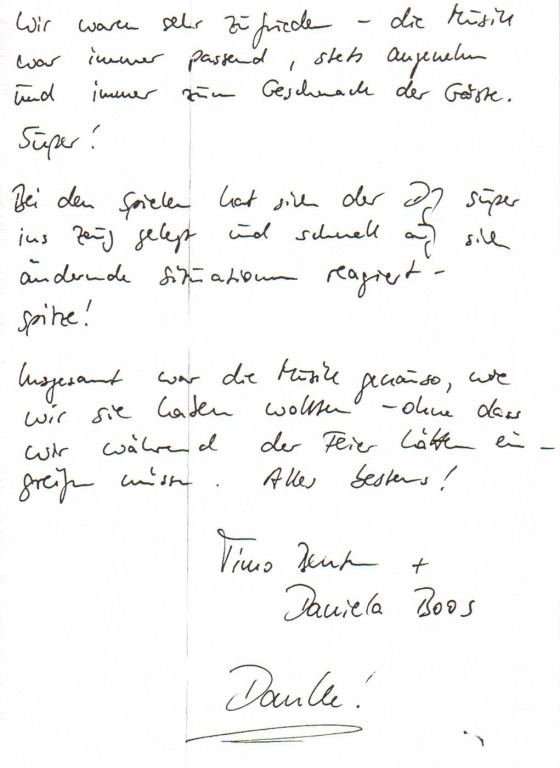 Wir waren sehr zufrieden - die Musik
war immer passend, stets angenehm
und immer zum Geschmack der Gäste.
Super!
Bei den Spielen hat sich der DJ super
ins Zeug gelegt und schnell auf sich
ändernde Situationen reagiert -
spitze!
Insgesamt war die Musik genauso, wie
wir sie haben wollten - ohne dass
wir während der Feier hätten ein-
greifen müssen. Alles bestens!
Timo +
Daniela Boos
Danke!